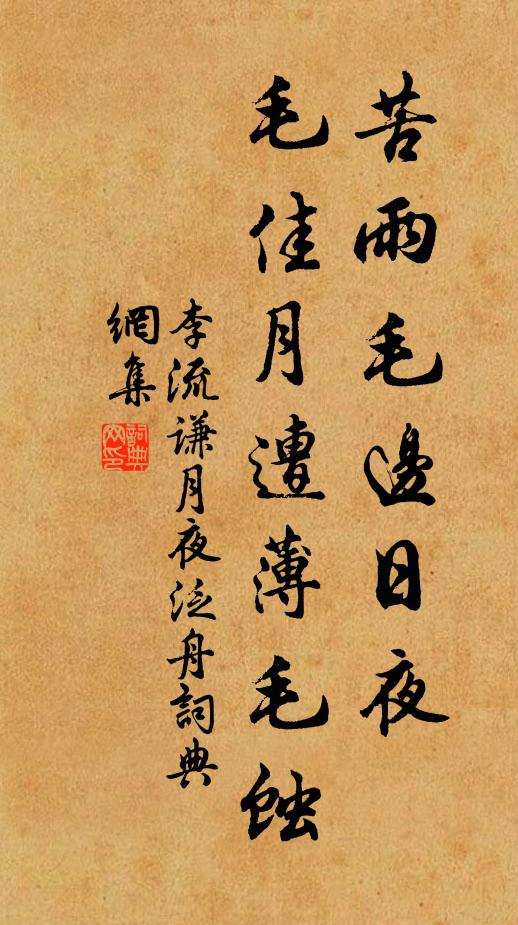 苦雨毛邊日夜
毛佳月遭薄毛蝕
李流谦月夜泛舟詞典
網集
詞典網印